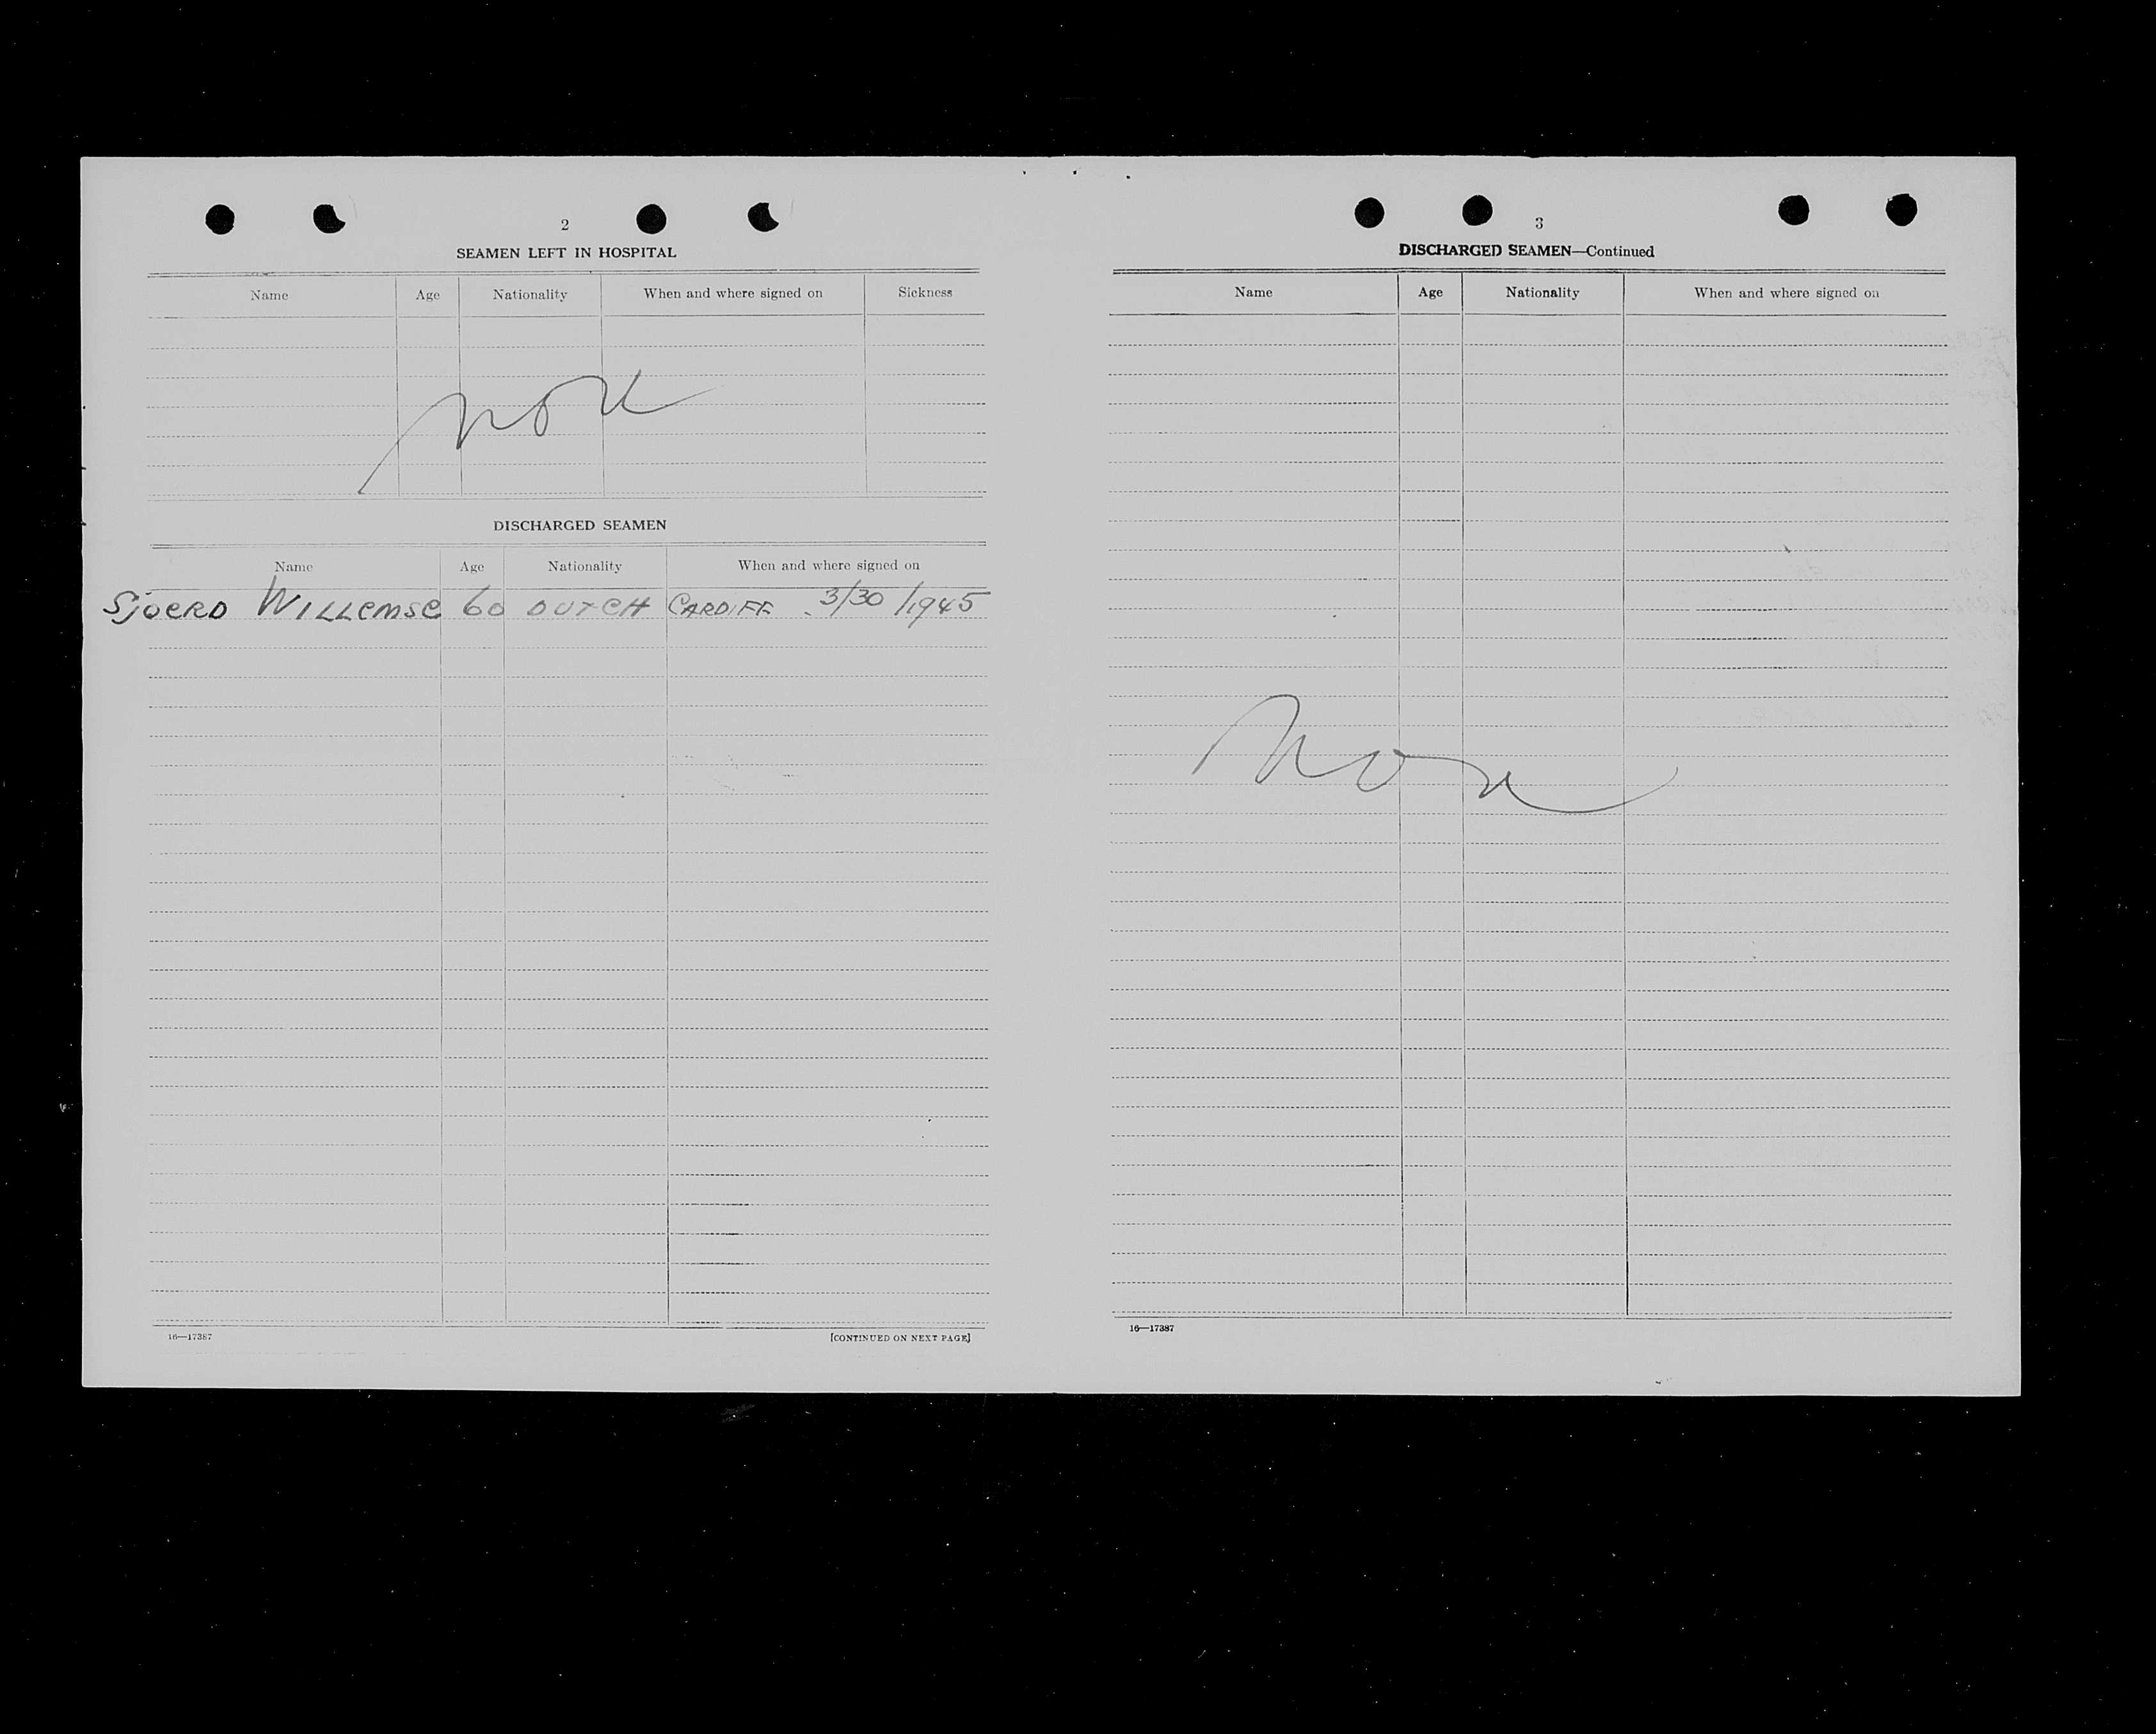 2
SEAMEN LEFT IN HOSPITAL
Name Age Nationality When and where signed on Sickness
None
DISCHARGED SEAMEN
Name Age Nationality When and where signed on
Sjoerd Willemse 60 DUTCH CARDIFF. 3/30/1945
16—17387 [CONTINUED ON NEXT PAGE]
3
DISCHARGED SEAMEN—Continued
Name Age Nationality When and where signed on
None
16—17387